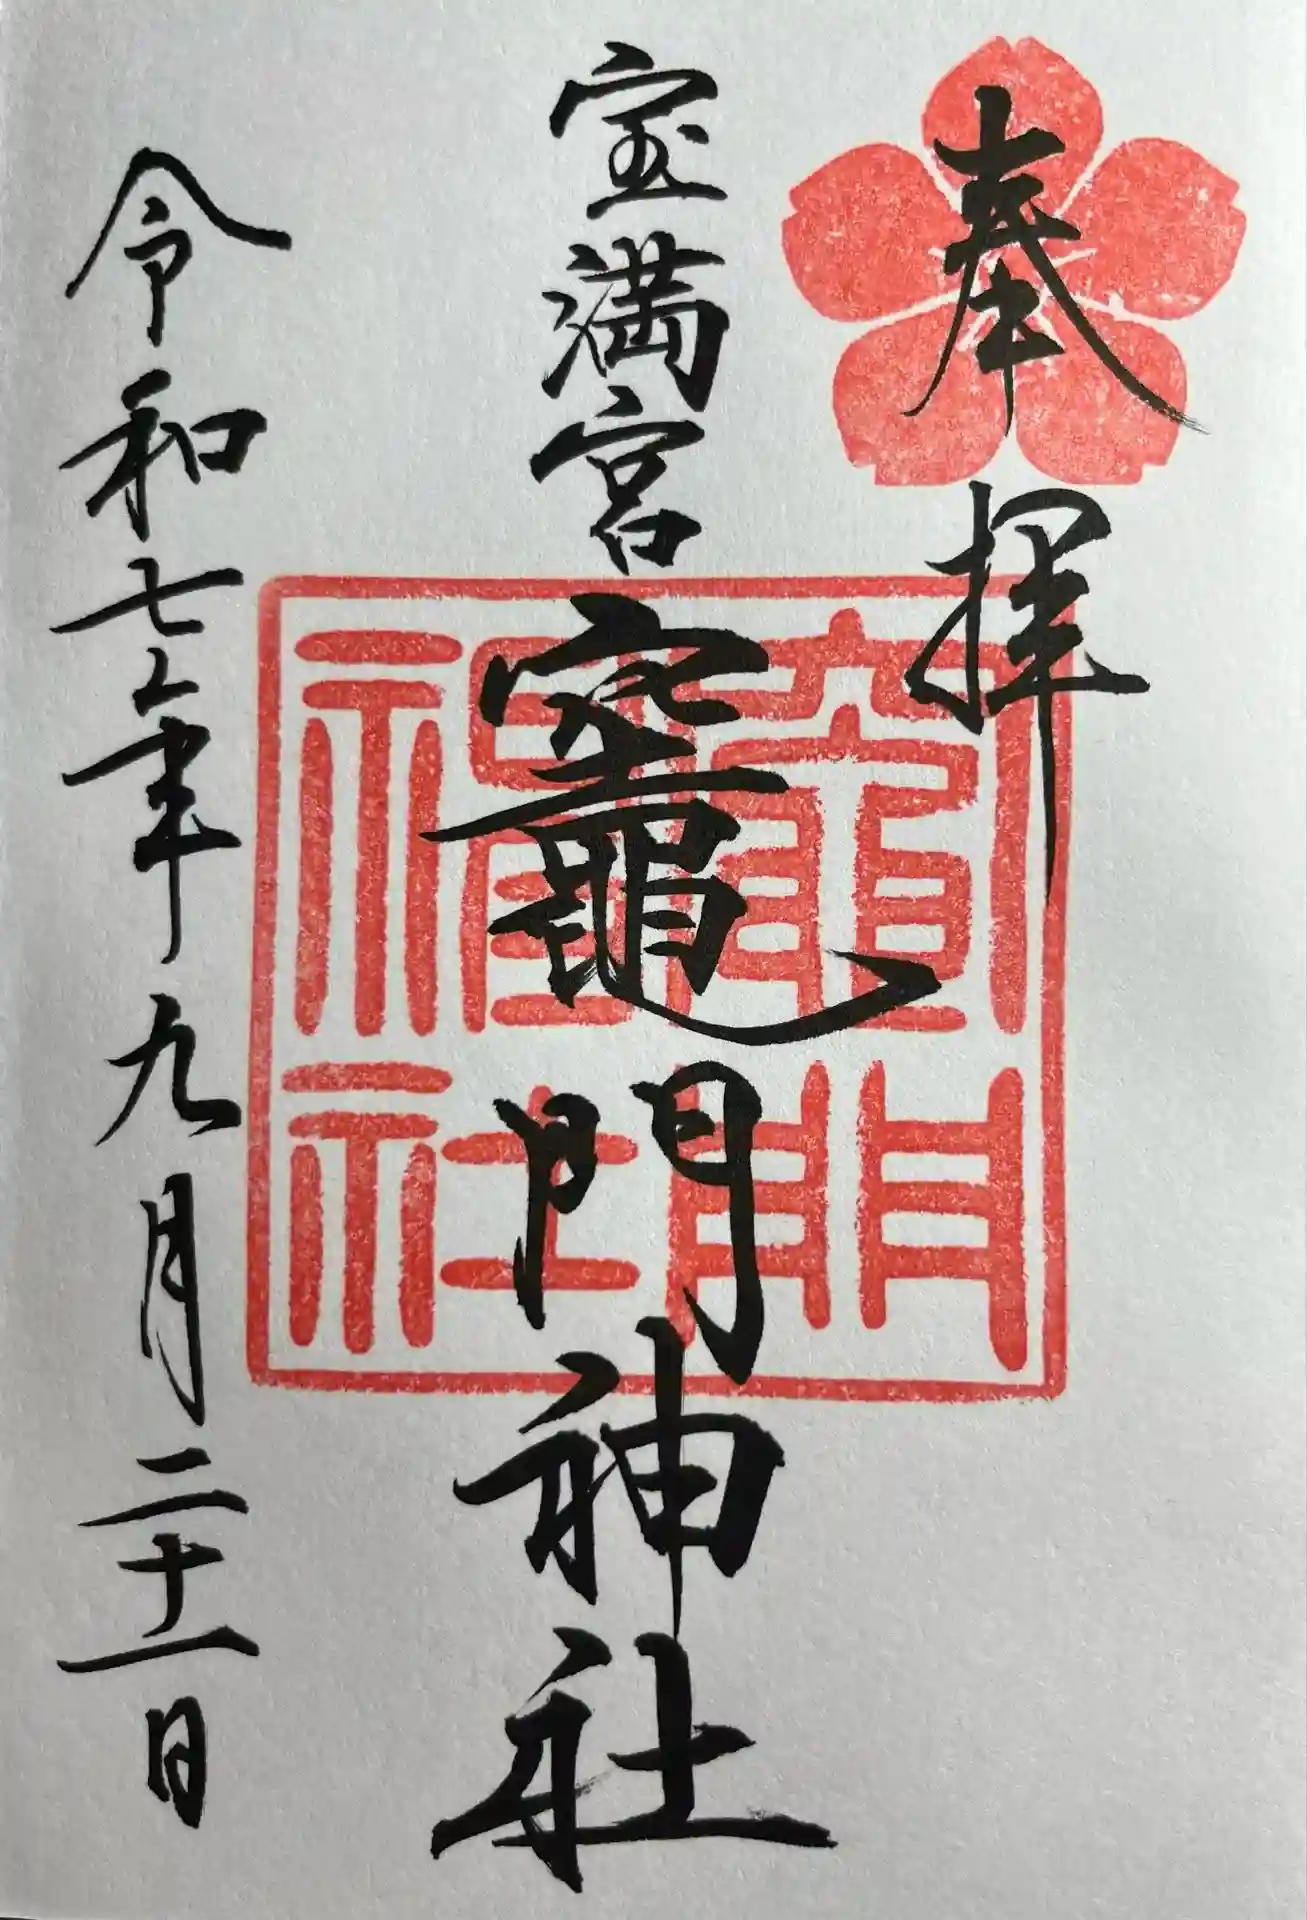 奉拝
宝満宮竈門神社
竈門神社
令和七年九月二十一日